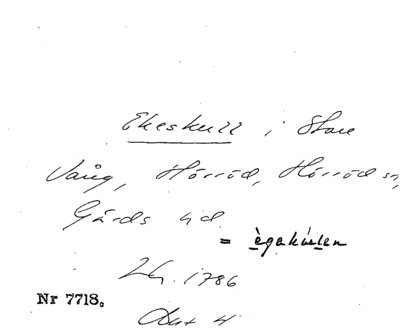 Ekeskull i Stora
Vång, Hörröd, Hörröd sn,
Gärds hd
= ègakúlen
Lh. 1786
Nr 7718.
Akt 4